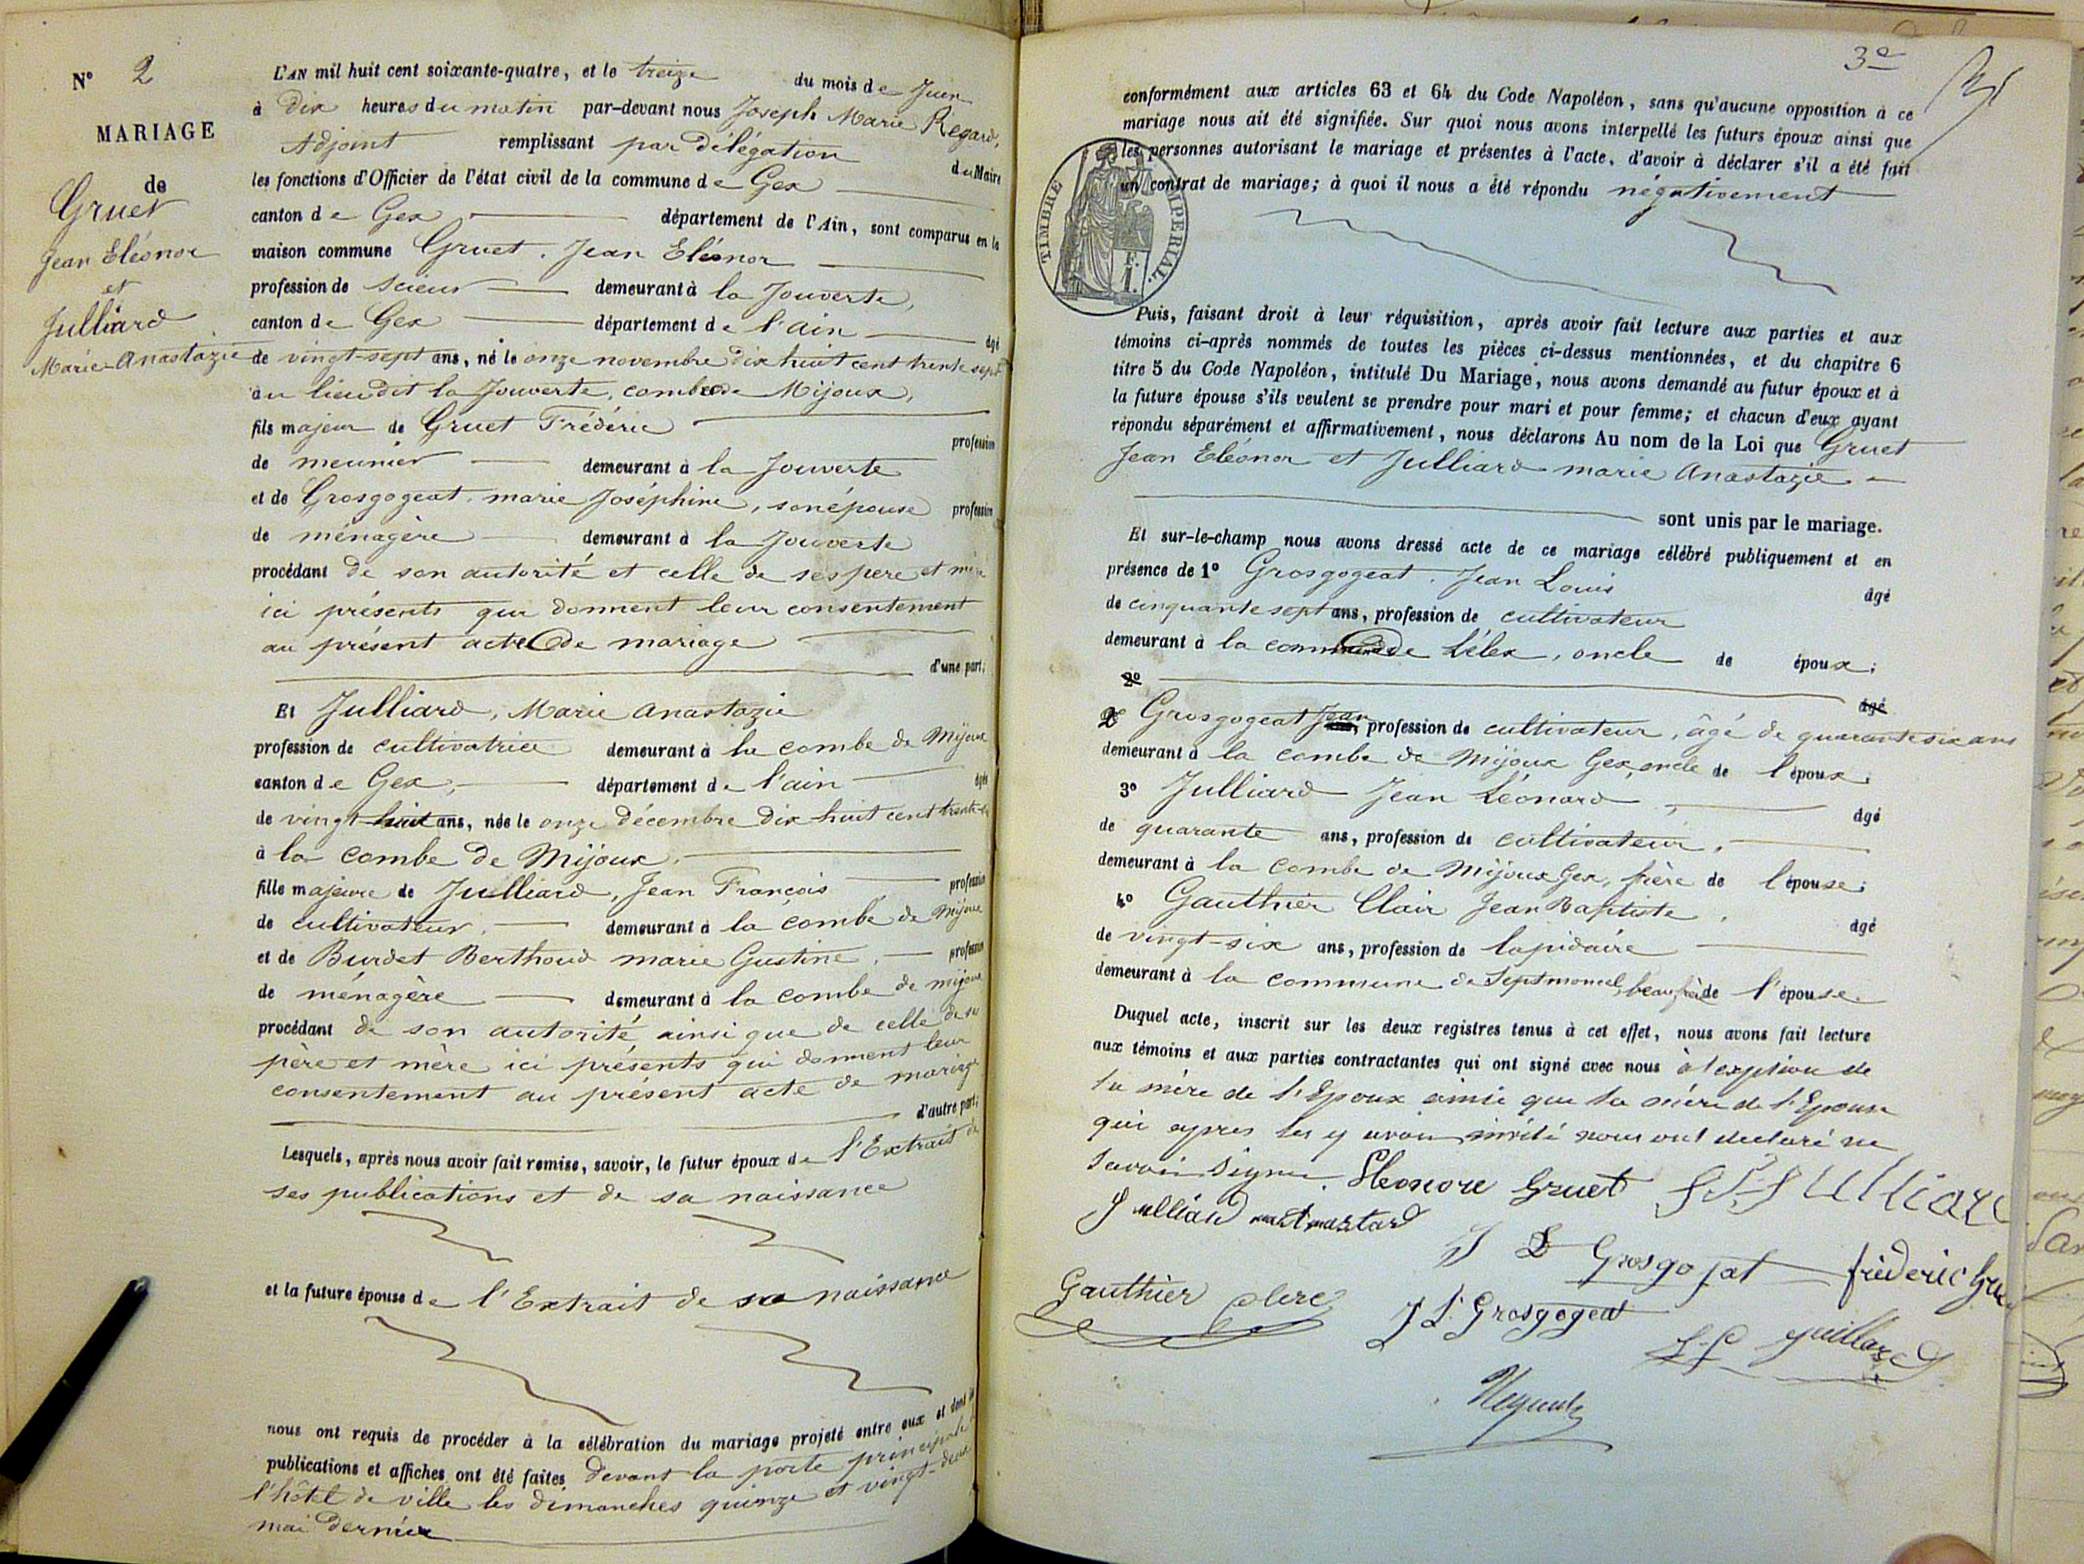 N° 2
MARIAGE
de
Gruet
Jean Eléonor
et
Julliard
Marie Anastazie
L'AN mil huit cent soixante-quatre, et le treize du mois de Juin
à dix heures du matin par-devant nous Joseph Marie Regard,
Adjoint remplissant par délégation du Maire
les fonctions d'Officier de l'état civil de la commune de Gex
canton de Gex département de l'Ain, sont comparus en la
maison commune Gruet, Jean Eléonor
profession de scieur demeurant à la Jouverte,
canton de Gex département de l'ain âgé
de vingt-sept ans, né le onze novembre dix huit cent trente sept
au lieu dit la Jouverte, combe de Mijoux,
fils majeur de Gruet Frédéric profession
de meunier demeurant à la Jouverte
et de Grosgogeat, marie Joséphine, son épouse profession
de ménagère demeurant à la Jouverte
procédant de son autorité et celle de ses père et mère
ici présents qui donnent leur consentement
au présent acte de mariage
d'une part;
Et Julliard, Marie Anastazie
profession de cultivatrice demeurant à la combe de Mijoux
canton de Gex, département de l'ain âgée
de vingt huit ans, née le onze décembre dix huit cent trente
à la combe de Mijoux,
fille majeure de Julliard, Jean François profession
de cultivateur, demeurant à la combe de Mijoux
et de Burdet Berthoud marie Gustine, profession
de ménagère demeurant à la combe de mijoux
procédant de son autorité ainsi que de celle de ses
père et mère ici présents qui donnent leur
consentement au présent acte de mariage
d'autre part;
Lesquels, après nous avoir fait remise, savoir, le futur époux de l'Extrait de
ses publications et de sa naissance
et la future épouse de l'Extrait de sa naissance
nous ont requis de procéder à la célébration du mariage projeté entre eux et dont les
publications et affiches ont été faites devant la porte principale
l'hôtel de ville les dimanches quinze et vingt-deux
mai dernier
3e
conformément aux articles 63 et 64 du Code Napoléon, sans qu'aucune opposition à ce
mariage nous ait été signifiée. Sur quoi nous avons interpellé les futurs époux ainsi que
les personnes autorisant le mariage et présentes à l'acte, d'avoir à déclarer s'il a été fait
un contrat de mariage; à quoi il nous a été répondu négativement
TIMBRE IMPERIAL.
Puis, faisant droit à leur réquisition, après avoir fait lecture aux parties et aux
témoins ci-après nommés de toutes les pièces ci-dessus mentionnées, et du chapitre 6
titre 5 du Code Napoléon, intitulé Du Mariage, nous avons demandé au futur époux et à
la future épouse s'ils veulent se prendre pour mari et pour femme; et chacun d'eux ayant
répondu séparément et affirmativement, nous déclarons Au nom de la Loi que Gruet
Jean Eléonor et Julliard marie Anastazie
sont unis par le mariage.
Et sur-le-champ nous avons dressé acte de ce mariage célébré publiquement et en
présence de 1° Grosgogeat, Jean Louis âgé
de cinquante sept ans, profession de cultivateur
demeurant à la commune de Lélex, oncle de époux;
2° âgé
2° Grosgogeat Jean, profession de cultivateur, âgé de quarante six ans
demeurant à la combe de Mijoux Gex, oncle de l'époux;
3° Julliard Jean Léonard, âgé
de quarante ans, profession de cultivateur,
demeurant à la combe de Mijoux Gex, frère de l'épouse;
4° Gauthier Clair Jean Baptiste, âgé
de vingt-six ans, profession de lapidaire
demeurant à la commune de Septmoncel, beau frère de l'épouse.
Duquel acte, inscrit sur les deux registres tenus à cet effet, nous avons fait lecture
aux témoins et aux parties contractantes qui ont signé avec nous à l'exption de
la mère de l'Epoux ainsi que la mère de l'Epouse
qui apres les y avoir invité nous ont declaré ne
savoir signer. Eleonore Gruet
Julliard
J L Grosgojat frederic Gru
Gauthier Clere J L Grosgogeat